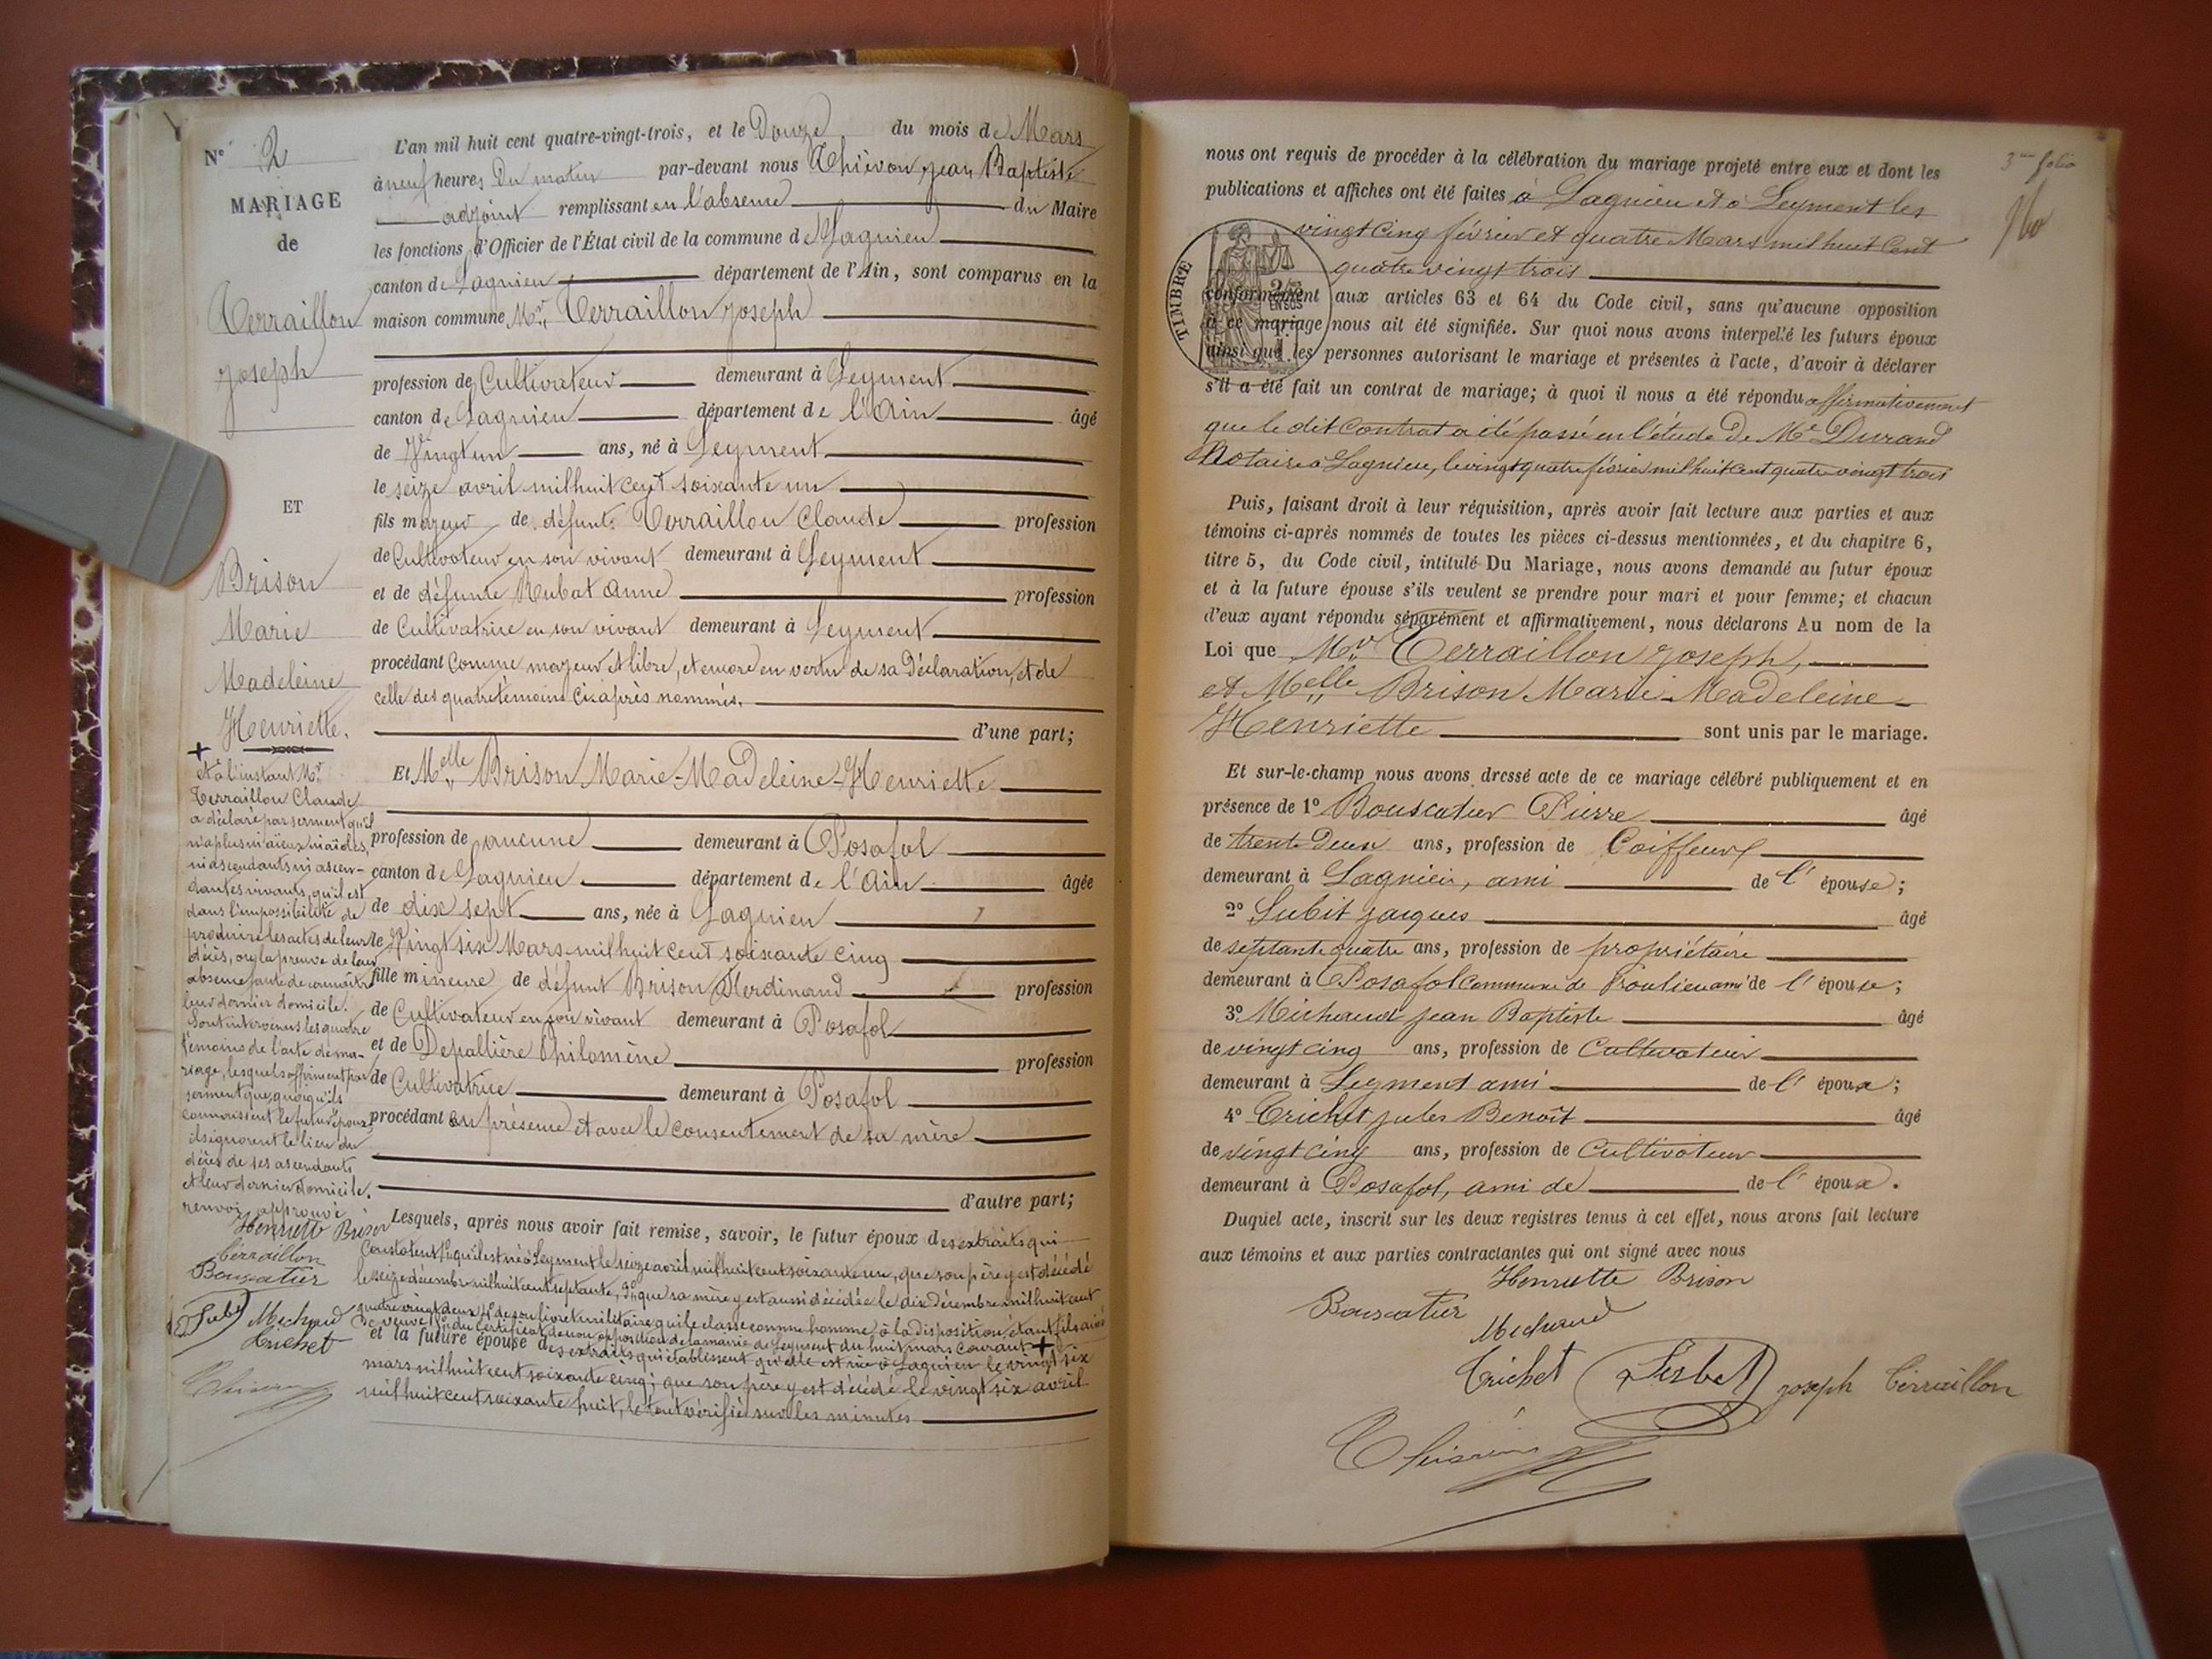 N° 2
MARIAGE
de
Terraillon
Joseph
ET
Brison
Marie
Madeleine
Henriette.
L'an mil huit cent quatre-vingt-trois, et le Douze du mois de Mars
à neuf heures du matin par-devant nous Thiévon, Jean Baptiste
adjoint remplissant en l'absence du Maire
les fonctions d'Officier de l'État civil de la commune de Lagnieu
canton de Lagnieu département de l'Ain, sont comparus en la
maison commune, Mr. Terraillon Joseph
profession de Cultivateur demeurant à Leyment
canton de Lagnieu département de l'Ain âgé
de Vingt un ans, né à Leyment
le seize avril mil huit cent soixante un
fils majeur de défunt Terraillon Claude profession
de Cultivateur en son vivant demeurant à Leyment
et de défunte Rubat Anne profession
de Cultivatrice en son vivant demeurant à Leyment
procédant comme majeur et libre, et encore en vertu de sa Déclaration, et de
celle des quatre témoins ci-après nommés.
d'une part;
Et Melle Brison Marie-Madeleine-Henriette
profession de aucune demeurant à Posafol
canton de Lagnieu département de l'Ain âgée
de dix sept ans, née à Lagnieu
le Vingt six Mars mil huit cent soixante cinq
fille mineure de défunt Brison Ferdinand profession
de Cultivateur en son vivant demeurant à Posafol
et de Depallière Philomène profession
de Cultivatrice demeurant à Posafol
procédant en présence et avec le consentement de sa mère
d'autre part;
Lesquels, après nous avoir fait remise, savoir, le futur époux des extraits qui
constatent 1° qu'il est né à Leyment le seize avril mil huit cent soixante un, que son père y est décédé
le seize décembre mil huit cent septante, 3° que sa mère y est aussi décédée le dix Décembre mil huit cent
quatre vingt deux 4° de son livret militaire qui le classe comme homme à la disposition, étant fils aîné
de veuve 5° du certificat de non opposition de la mairie de Leyment du huit mars courant +
et la future épouse des extraits qui établissent qu'elle est née à Lagnieu le vingt six
mars mil huit cent soixante cinq; que son père y est décédé le vingt six avril
mil huit cent soixante huit, le tout vérifié sur les minutes
+
et à l'instant Mr
Terraillon Claude
a déclaré par serment qu'il
n'a plus ni aïeux ni aïeules,
ni ascendants ni ascen-
dantes vivants, qu'il est
dans l'impossibilité de
produire les actes de leur
décès, ou la preuve de leur
absence faute de connaître
leur dernier domicile.
Sont intervenus les quatre
témoins de l'acte de ma-
riage, lesquels affirment par
serment que, quoiqu'ils
connaissent le futur époux,
ils ignorent le lieu du
décès de ses ascendants
et leur dernier domicile.
renvoi approuvé
Henriette Brison
Terraillon
Bouscatier
Michaud
Trichet
3me folio
nous ont requis de procéder à la célébration du mariage projeté entre eux et dont les
publications et affiches ont été faites à Lagnieu et à Leyment les
vingt cinq février et quatre Mars mil huit cent
quatre vingt trois
TIMBRE
conformément aux articles 63 et 64 du Code civil, sans qu'aucune opposition
à ce mariage nous ait été signifiée. Sur quoi nous avons interpelé les futurs époux
ainsi que les personnes autorisant le mariage et présentes à l'acte, d'avoir à déclarer
s'il a été fait un contrat de mariage; à quoi il nous a été répondu affirmativement
que le dit Contrat a été passé en l'étude de Me Durand
Notaire à Lagnieu, le vingt quatre février mil huit cent quatre vingt trois
Puis, faisant droit à leur réquisition, après avoir fait lecture aux parties et aux
témoins ci-après nommés de toutes les pièces ci-dessus mentionnées, et du chapitre 6,
titre 5, du Code civil, intitulé Du Mariage, nous avons demandé au futur époux
et à la future épouse s'ils veulent se prendre pour mari et pour femme; et chacun
d'eux ayant répondu séparément et affirmativement, nous déclarons Au nom de la
Loi que Mr Terraillon Joseph,
et Melle Brison Marie-Madeleine-
Henriette sont unis par le mariage.
Et sur-le-champ nous avons dressé acte de ce mariage célébré publiquement et en
présence de 1° Bouscatier Pierre âgé
de trente deux ans, profession de Coiffeur
demeurant à Lagnieu, ami de l' épouse;
2° Subit Jacques âgé
de septante quatre ans, profession de propriétaire
demeurant à Posafol commune de Proulieu ami de l' épouse;
3° Michaud Jean Baptiste âgé
de vingt cinq ans, profession de Cultivateur
demeurant à Leyment ami de l' époux;
4° Trichet Jules Benoît âgé
de vingt cinq ans, profession de Cultivateur
demeurant à Posafol, ami de de l' époux.
Duquel acte, inscrit sur les deux registres tenus à cet effet, nous avons fait lecture
aux témoins et aux parties contractantes qui ont signé avec nous
Henriette Brison
Bouscatier
Michaud
Trichet Joseph Terraillon